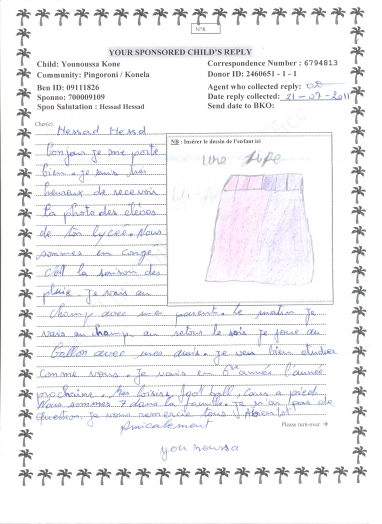 N°8
YOUR SPONSORED CHILD'S REPLY
Child: Younoussa Kone
Correspondence Number : 6794813
Community: Pingoroni / Konela
Donor ID: 2460651 - 1 - 1
Ben ID: 09111826
Agent who collected reply:
Sponno: 700009109
Date reply collected: 21-07-2011
Spon Salutation : Hessad Hessad
Send date to BKO:
Cher(e)
Hessad Hessd
NB : Insérer le dessin de l'enfant ici
une jipe
bonjour je me porte
bien. je suis très
heureux de recevoir
la photo des élèves
de ton lycée. Nous
sommes en congé
c'est la saison des
pluie. Je vais au
champ avec mes parent. le matin je
vais au champ au retour le soir je joue au
ballon avec mes amis. je veu bien étudier
comme vous. Je vais en année l'année
prochaine. Mes loisirs foot ball, cours a pied.
Nous sommes 7 dans la famille. Je n'ai pas de
question. Je vous remercie tous ! A bientôt !
Amicalement
Please turn-over
younoussa